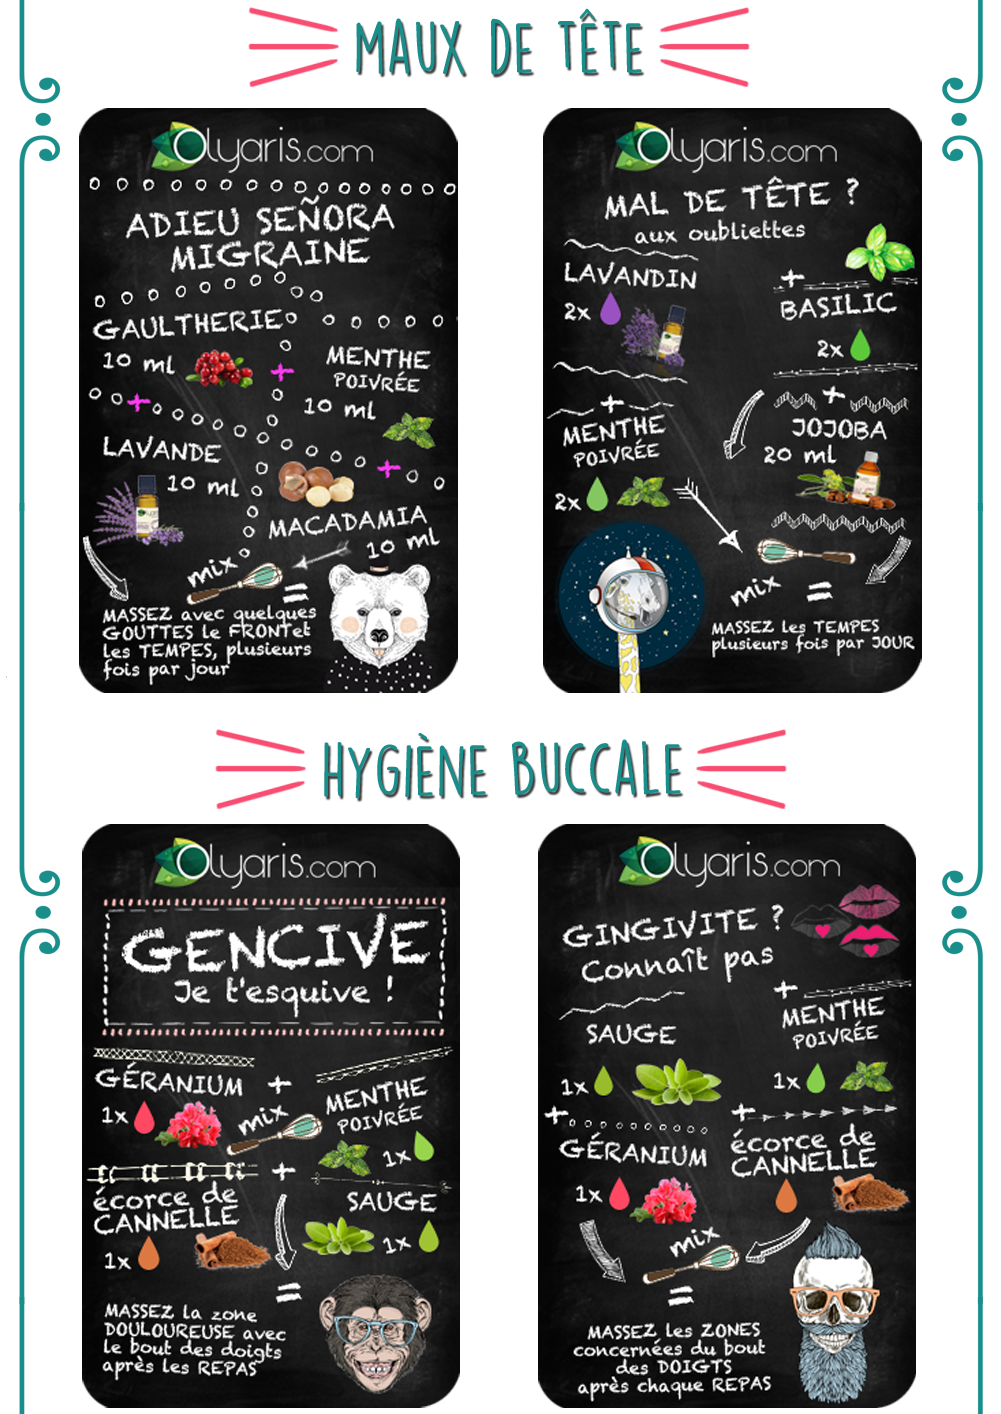 MAUX DE TÊTE
Olyaris.com
ADIEU SEÑORA
MIGRAINE
GAULTHERIE
10 ml
+
MENTHE
POIVRÉE
10 ml
+
LAVANDE
10 ml
+
MACADAMIA
10 ml
mix
=
MASSEZ avec quelques
GOUTTES le FRONT et
les TEMPES, plusieurs
fois par jour
Olyaris.com
MAL DE TÊTE ?
aux oubliettes
LAVANDIN
2x
+
BASILIC
2x
+
MENTHE
POIVRÉE
2x
+
JOJOBA
20 ml
mix
=
MASSEZ les TEMPES
plusieurs fois par JOUR
HYGIÈNE BUCCALE
Olyaris.com
GENCIVE
Je t'esquive !
GÉRANIUM
1x
+
mix
MENTHE
POIVRÉE
1x
écorce de
CANNELLE
1x
+
SAUGE
1x
=
MASSEZ la zone
DOULOUREUSE avec
le bout des doigts
après les REPAS
Olyaris.com
GINGIVITE ?
Connaît pas
SAUGE
1x
+
MENTHE
POIVRÉE
1x
+
GÉRANIUM
1x
+
écorce de
CANNELLE
mix
=
MASSEZ les ZONES
concernées du bout
des DOIGTS
après chaque REPAS